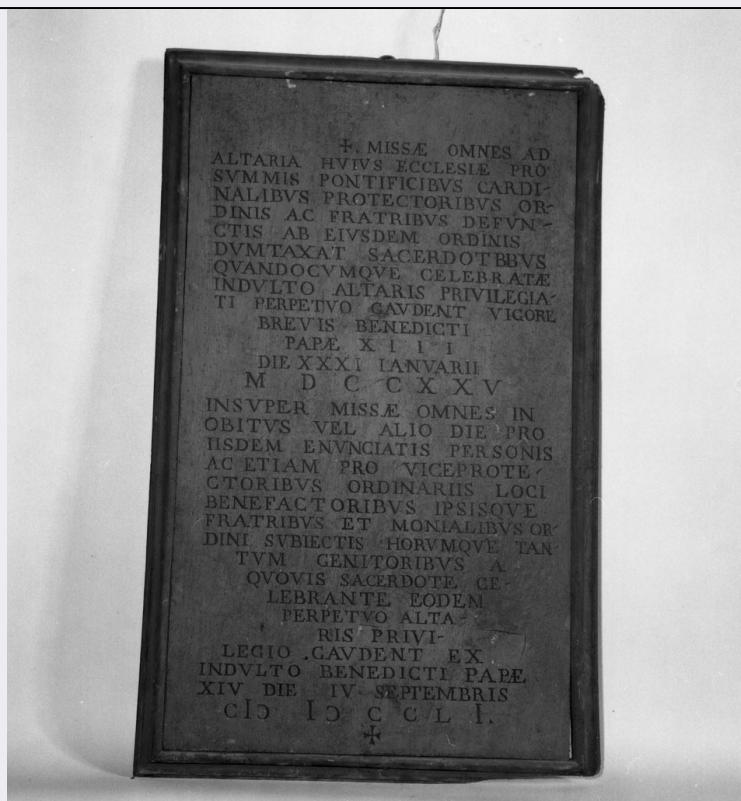 ✠. MISSÆ OMNES AD
ALTARIA HVIVS ECCLESIÆ PRO
SVMMIS PONTIFICIBVS CARDI-
NALIBVS PROTECTORIBVS OR-
DINIS AC FRATRIBVS DEFVN-
CTIS AB EIVSDEM ORDINIS
DVMTAXAT SACERDOTBBVS
QVANDOCVMQVE CELEBRATÆ
INDVLTO ALTARIS PRIVILEGIA-
TI PERPETVO GAVDENT VIGORE
BREVIS BENEDICTI
PAPÆ XIIII
DIE XXXI IANVARII
M D C C X X V
INSVPER MISSÆ OMNES IN
OBITVS VEL ALIO DIE PRO
IISDEM ENVNCIATIS PERSONIS
AC ETIAM PRO VICEPROTE-
CTORIBVS ORDINARIIS LOCI
BENEFACTORIBVS IPSISQVE
FRATRIBVS ET MONIALIBVS OR-
DINI SVBIECTIS HORVMQVE TAN-
TVM GENITORIBVS A
QVOVIS SACERDOTE CE-
LEBRANTE EODEM
PERPETVO ALTA-
RIS PRIVI-
LEGIO .GAVDENT EX
INDVLTO BENEDICTI PAPÆ
XIV DIE IV SEPTEMBRIS
CIↃ IↃ C C L I.
✠